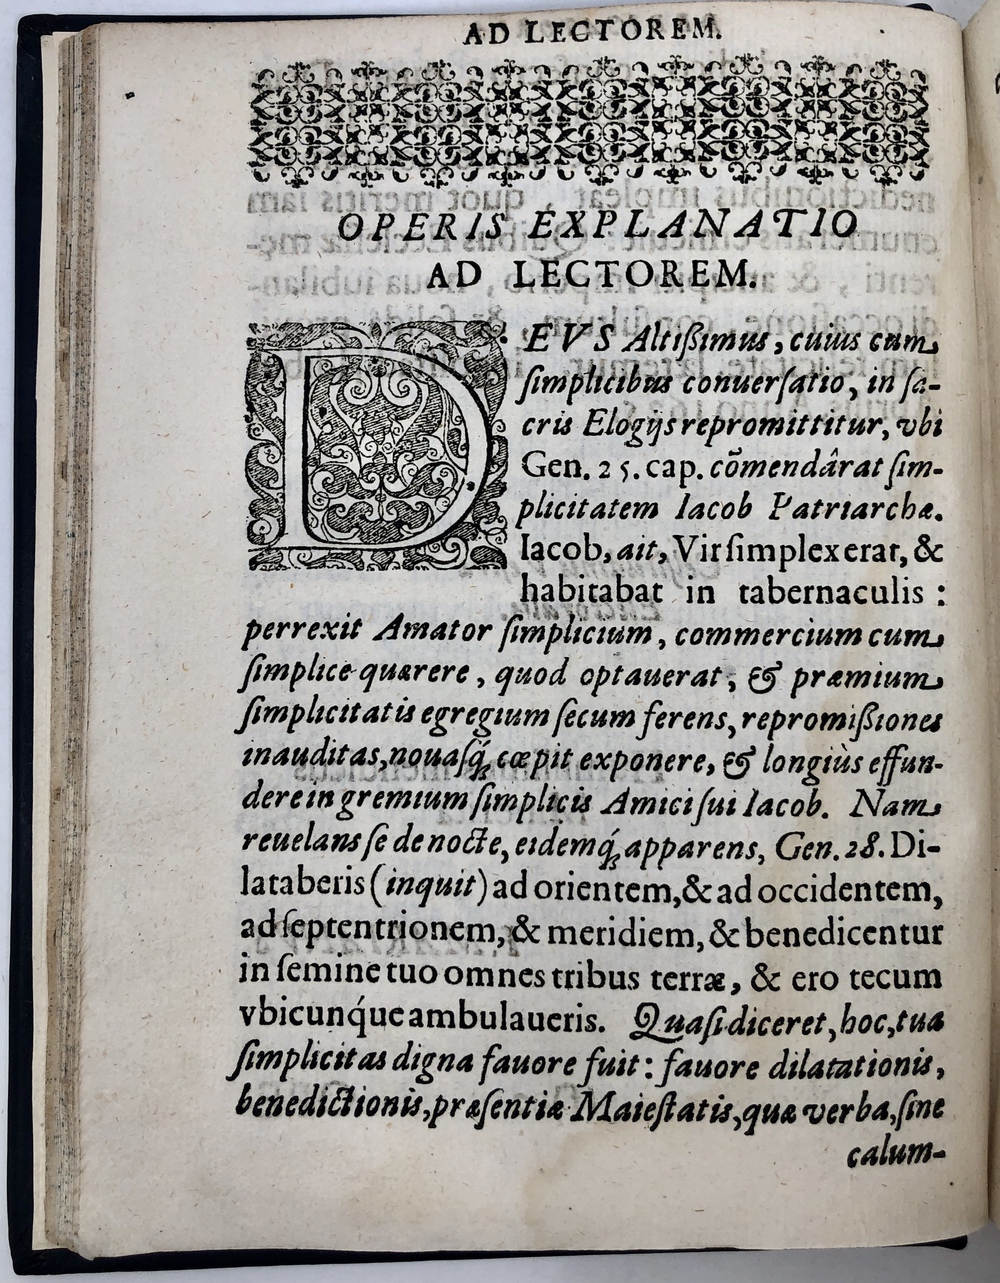 AD LECTOREM.
OPERIS EXPLANATIO
AD LECTOREM.
DEVS Altißimus, cuius cum
ſimplicibus conuerſatio, in ſa-
cris Elogijs repromittitur, vbi
Gen. 25. cap. cõmendârat ſim-
plicitatem Iacob Patriarchæ.
Iacob, ait, Vir ſimplex erat, &
habitabat in tabernaculis :
perrexit Amator ſimplicium, commercium cum
ſimplice quærere, quod optauerat, & præmium
ſimplicitatis egregium ſecum ferens, repromißiones
inauditas, nouaſq́; cœpit exponere, & longiùs effun-
dere in gremium ſimplicis Amici ſui Iacob. Nam
reuelans ſe de nocte, eidemq́; apparens, Gen. 28. Di-
lataberis (inquit) ad orientem, & ad occidentem,
ad ſeptentrionem, & meridiem, & benedicentur
in ſemine tuo omnes tribus terræ, & ero tecum
vbicunq́ue ambulaueris. Quaſi diceret, hoc, tua
ſimplicitas digna fauore fuit : fauore dilatationis,
benedictionis, præſentiæ Maieſtatis, quæ verba, ſine
calum-